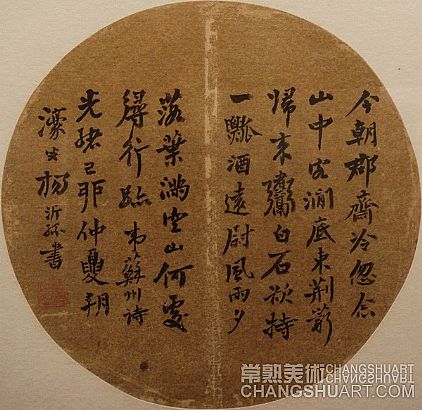 今朝郡齋冷忽念
山中客澗底束荊薪
歸來䰞白石欲持
一瓢酒遠尉風雨夕
落葉滿空山何處
尋行跡韋蘇州詩
光緒己卯仲夏朔
濠叟楊沂孫書
常熟美術 CHANGSHUART
CHANGSHUART.COM